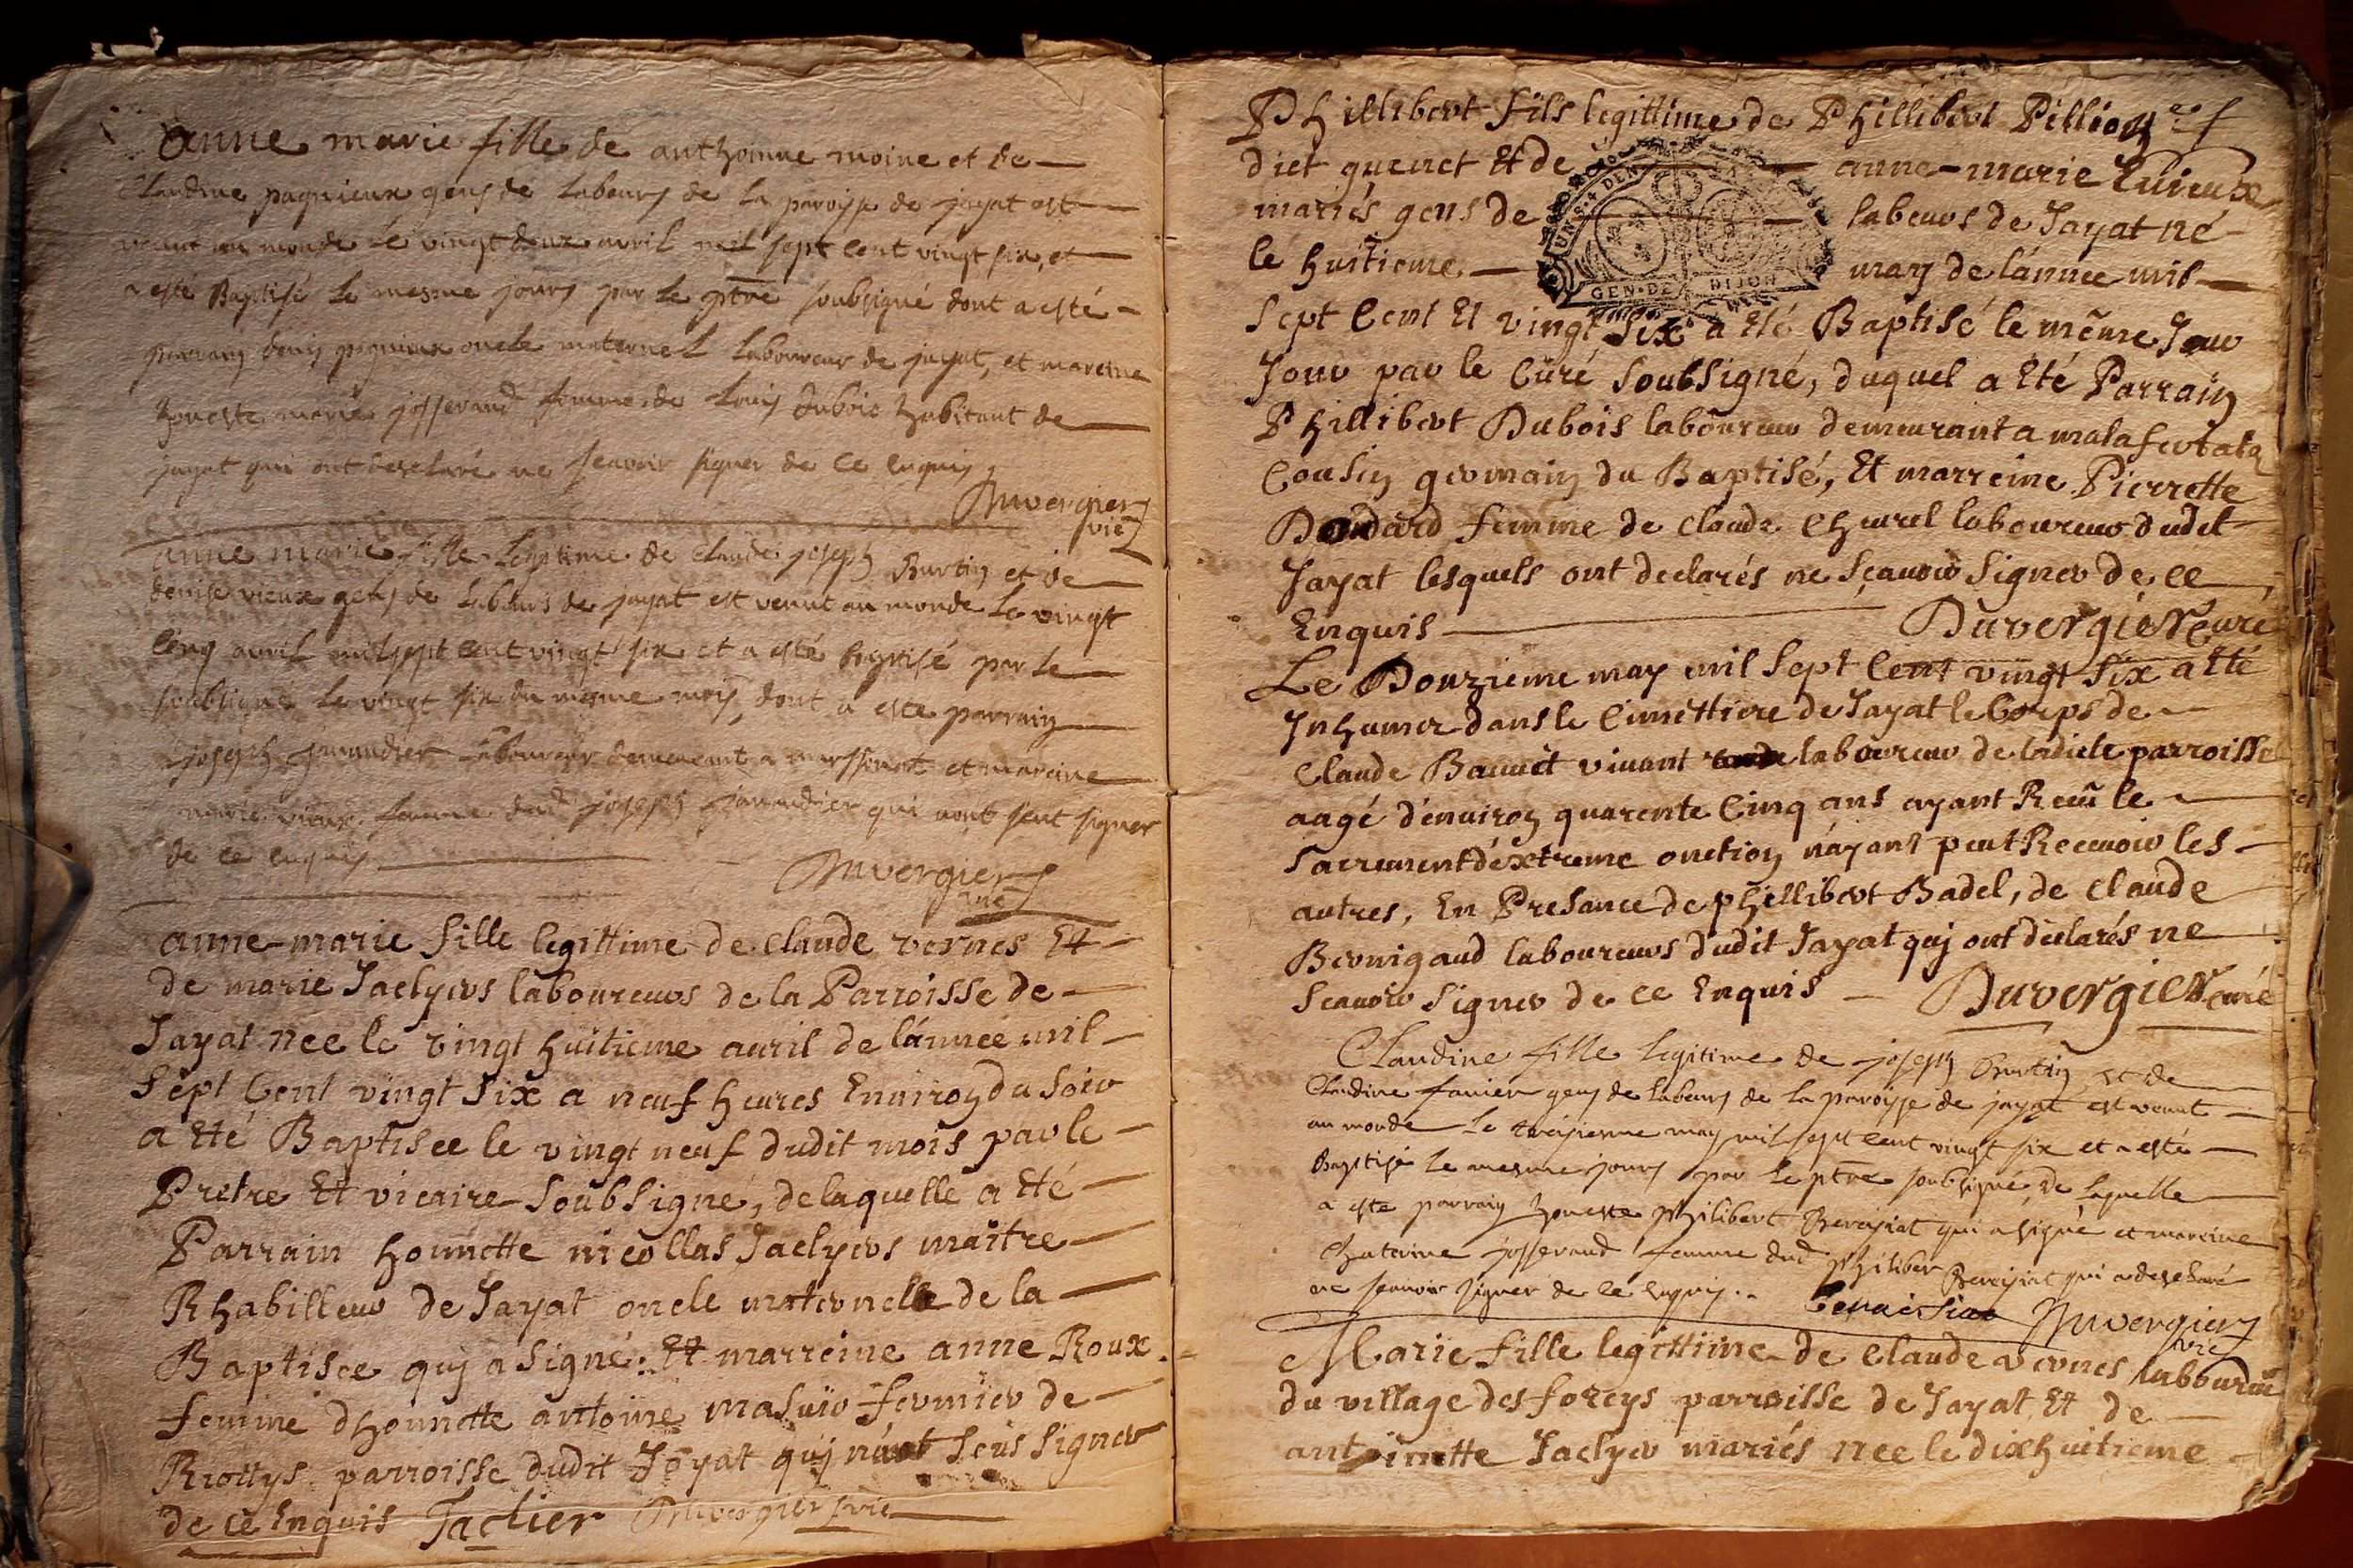 anne marie fille de anthoinne moine et de
Claudine pagnieux gens de labeurs de la paroisse de jayat est
venut au monde le vingt deux avril mil sept cent vingt six, et
a esté Baptisé le mesme jours par le ptre soubsigné dont a esté
parrain denis pagnieux oncle maternel laboureur de jayat, et mareine
honeste marie josserand femme de Louis dubois habitant de
jayat qui ont desclaré ne scavoir signer de ce enquis
Duvergier
vic
anne marie fille legitime de claude joseph Burtin et de
denise vieux gens de labeurs de jayat est venut au monde le vingt
cinq avril mil sept cent vingt six et a esté baptisé par le
soubsigné le vingt six du mesme mois, dont a esté parrain
joseph labourer demeurant a et mareine
marie vieux femme dud joseph qui nont sceut signer
de ce enquis
Duvergier
vic
anne-marie fille legittime de claude vernes Et
de marie Jaclyers laboureurs de la Parroisse de
Jayat nee le vingt huitieme avril de lánnée mil
sept Cent vingt six a neuf heures Environ du soir
a Eté Baptisee le vingt neuf dudit mois par le
Pretre Et vicaire soubsigné, de laquelle a Eté
Parrain honnette nicollas Jaclyers maître
Rhabilleur de Jayat oncle maternelle de la
Baptisee quj a signé: Et marreine anne Roux
femme dhonnette antoine masuir fermier de
Riottys parroisse dudit Jayat quj n'ont seus signer
de ce Enquis Jaclier Duvergier vic
Phillibert fils legittime de Phillibert Pillion
dict quenet Et de anne-marie Enieux
mariés gens de labeurs de Jayat né
lé huitieme may de lánnee mil
GEN·DE DIJON
sept Cent Et vingt six a Eté Baptisé le même Jour
Jour par le Curé soubsigné, duquel a Eté Parrain
Phillibert Dubois laboureur demeurant a malafertata
Cousin germain du Baptisé, Et marreine Pierrette
Dondard femme de claude Chevrel laboureur dudit
Jayat lesquels ont declarés ne sçavoir signer de ce
Enquis Duvergier Curé
Le Douzieme may mil sept Cent vingt six a Eté
Inhumer dans le Cimettiere de Jayat le Corps de
Claude vivant laboureur de ladicte parroisse
aagé d'environ quarente Cinq ans ayant Receu le
sacrement d'extreme onction n'ayant peut Recevoir les
autres, En Presance de phillibert Badel, de claude
Bernigaud laboureurs dudit Jayat quj ont declarés ne
scavoir signer de ce Enquis Duvergier curé
Claudine fille legitime de joseph Burtin et de
Claudine fanier gens de labeurs de la paroisse de jayat est venut
au monde le treisieme may mil sept cent vingt six et a esté
Baptisé le mesme jours par le ptre soubsigné, de laquelle
a esté parrain honeste philibert Bereisiat qui a signé et mareine
Chaterine josserand femme dud philiber Bereisiat qui a desclaré
ne scavoir signer de ce enquis. Beraisiat Duvergier
vic
Marie fille legittime de claude vernes labboureur
du village des foreys parroisse de Jayat Et de
antoinette Jaclyer mariés nee le dixhuitieme